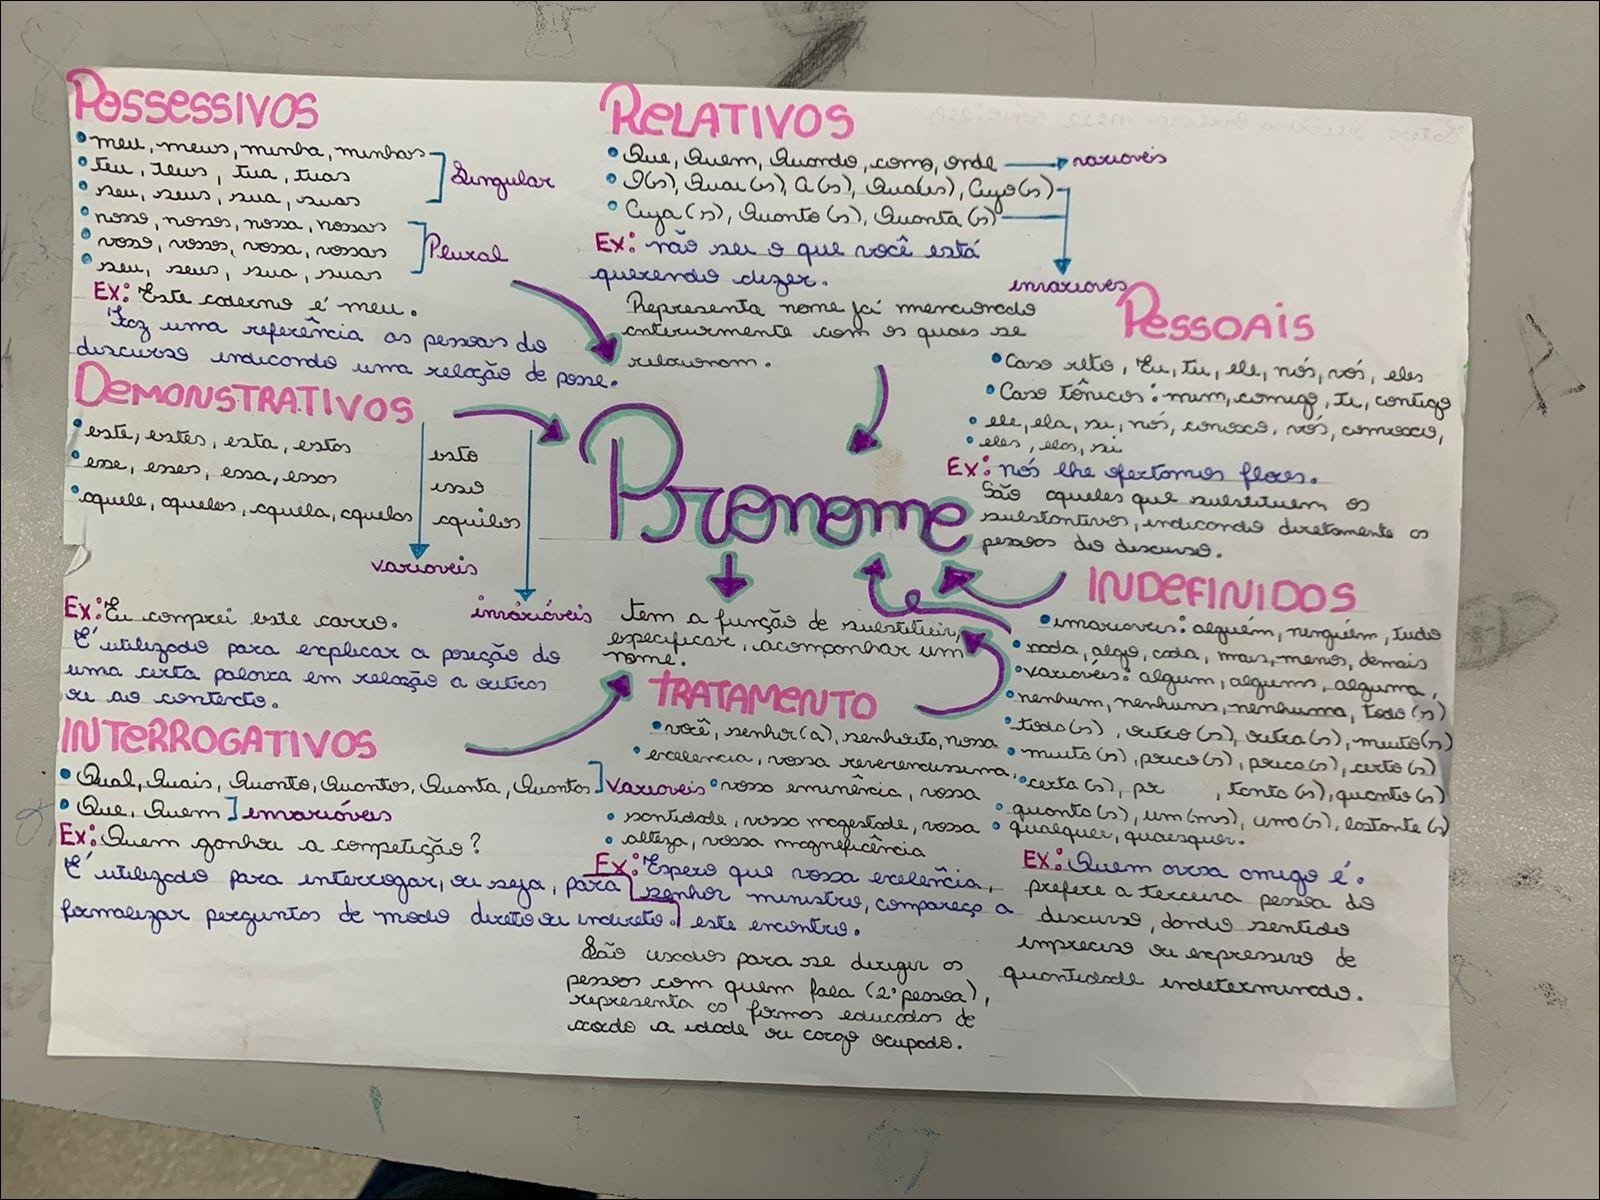 POSSESSIVOS
• meu, meus, minha, minhas
• teu, teus, tua, tuas
• seu, seus, sua, suas
Singular
• nosso, nossos, nossa, nossas
• vosso, vossos, vossa, vossas
• seu, seus, sua, suas
Plural
Ex: Este caderno é meu.
Faz uma referência as pessoas do
discurso indicando uma relação de posse.
RELATIVOS
• Que, Quem, Quando, como, onde
variaveis
• O(s), Quai(s), A(s), Qual(is), Cujo(s)
• Cuja(s), Quanto(s), Quanta(s)
invariaves
Ex: não sei o que você está
querendo dizer.
Representa nome já mencionado
anteriormente com os quais se
relacionam.
PESSOAIS
• Caso reto, Eu, tu, ele, nós, vós, eles
• Caso tônicos: mim, comigo, ti, contigo
• ele, ela, si, nós, conosco, vós, convosco,
• eles, elas, si
Ex: nós lhe ofertamos flores.
São aqueles que substituem os
substantivos, indicando diretamente as
pessoas do discurso.
DEMONSTRATIVOS
• este, estes, esta, estas
• esse, esses, essa, essas
• aquele, aqueles, aquela, aquelas
isto
isso
aquilos
variaveis
invariáveis
Ex: Eu comprei este carro.
É utilizado para explicar a posição de
uma certa palavra em relação a outros
ou ao contexto.
Pronome
tem a função de substituir,
especificar, acompanhar um
nome.
INDEFINIDOS
• invariaveis: alguém, ninguém, tudo
• nada, algo, cada, mais, menos, demais
• variavéis: algum, alguns, alguma,
• nenhum, nenhuns, nenhuma, todo(s)
• todo(s), outro(s), outra(s), muito(s)
• muito(s), pouco(s), pouco(s), certo(s)
• certa(s), tanto(s), quanto(s)
• quanto(s), um(ns), uma(s), bastante(s)
• qualquer, quaisquer.
Ex: Quem avisa amigo é.
prefere a terceira pessoa do
discurso, dando sentido
impreciso ou expressivo de
quantidade indeterminado.
TRATAMENTO
• você, senhor(a), senhorito, nossa
• excelencia, vossa reverendissima,
• vossa eminência, vossa
• santidade, vossa magestade, vossa
• alteza, vossa magneficência
Ex: Espero que vossa excelência,
senhor ministro, compareça a
este encontro.
São usados para se dirigir as
pessoas com quem fala (2ª pessoa),
representa as formas educadas de
acordo a idade ou cargo ocupado.
INTERROGATIVOS
• Qual, Quais, Quanto, Quantos, Quanta, Quantas
Variaveis
• Que, Quem
invariáveis
Ex: Quem ganhou a competição?
É utilizado para interrogar, ou seja, para
formalizar perguntas de modo direto ou indireto.